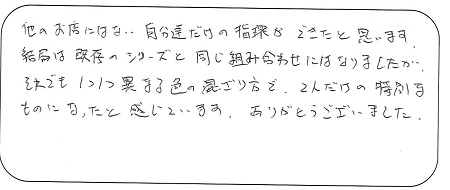 他のお店にはない、自分達だけの指環ができたと思います。
結局は既存のシリーズと同じ組み合わせにはなりましたが、
それでも1つ1つ異なる色の混ざり方で、2人だけの特別な
ものになったと感じています。ありがとうございました。